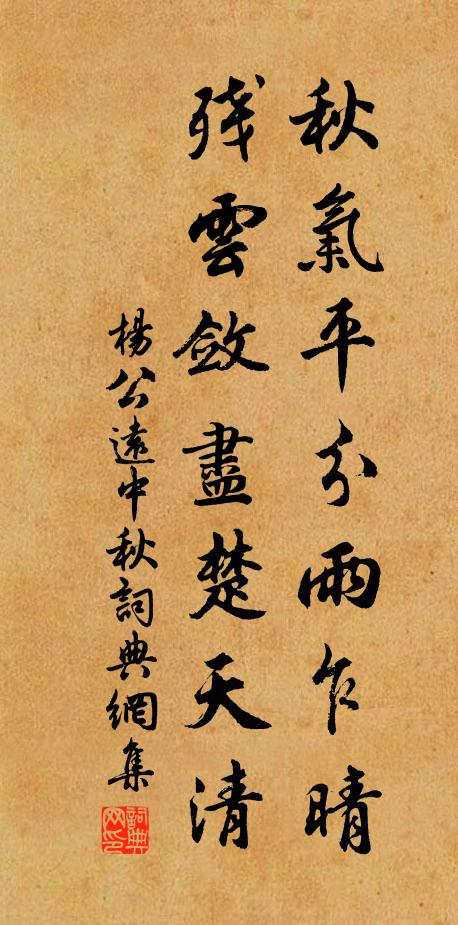 秋氣平分雨乍晴
殘雲斂盡楚天清
楊公遠中秋詞典網集
詞典网印